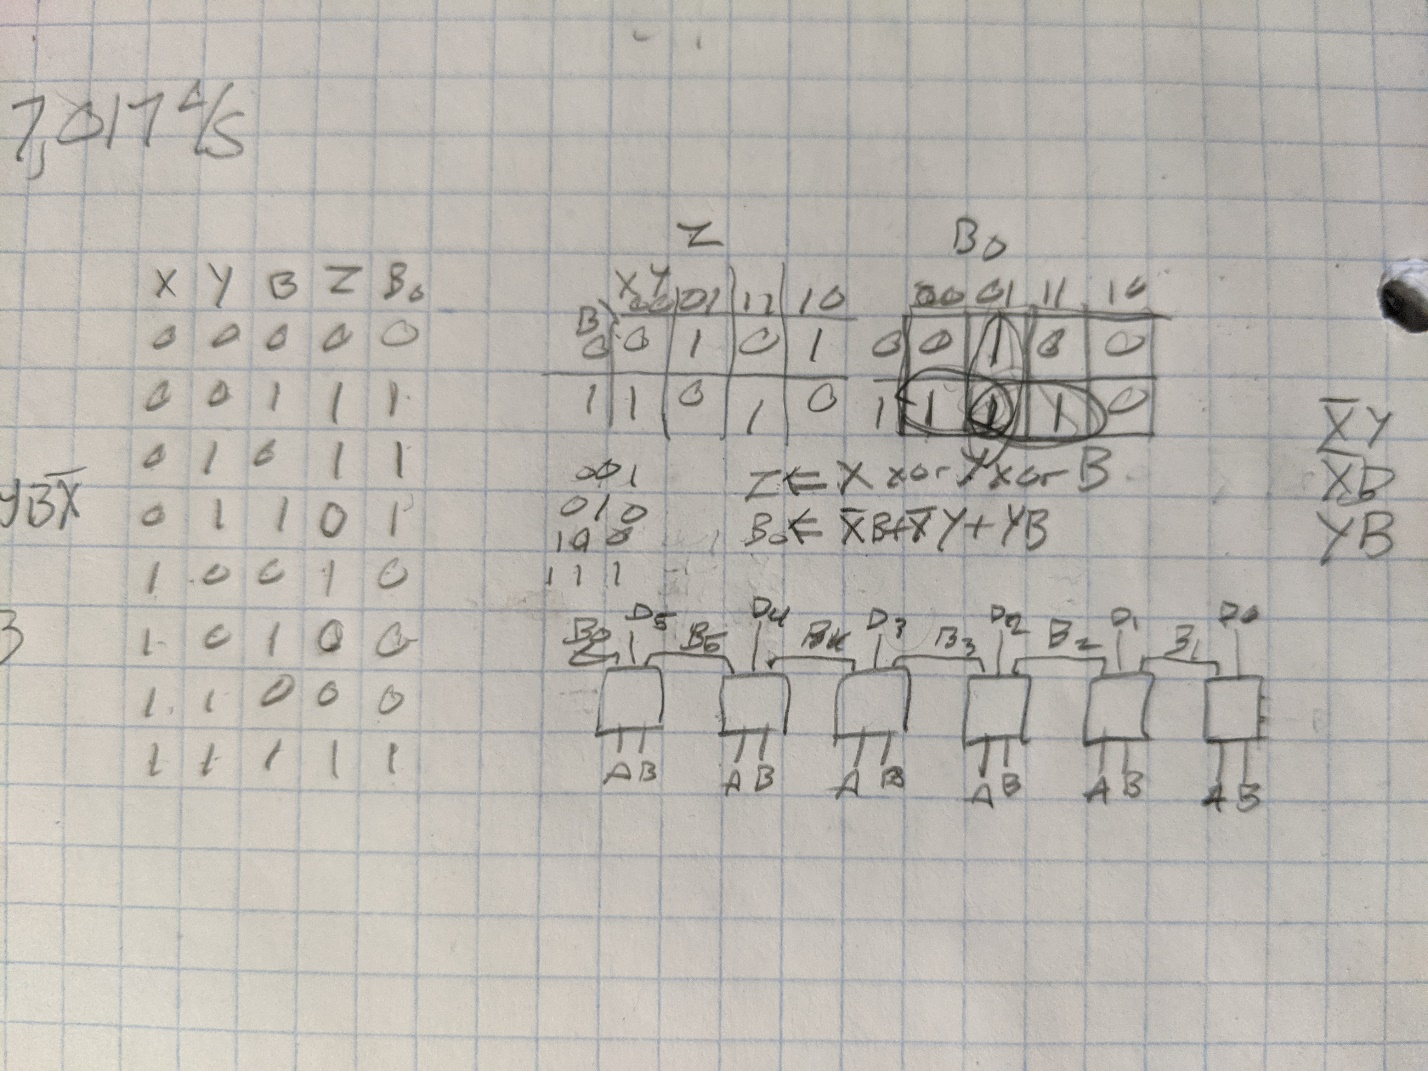 7,017 4/5
X Y B Z B₀
0 0 0 0 0
0 0 1 1 1
0 1 0 1 1
YBX̅ 0 1 1 0 1
1 0 0 1 0
1 0 1 0 0
1 1 0 0 0
1 1 1 1 1
Z
XY
B 00 01 11 10
0 0 1 0 1
1 1 0 1 0
B₀
00 01 11 10
0 0 1 0 0
1 1 1 1 0
001
010
100
111
Z ⇐ X xor Y xor B
B₀ ⇐ X̅B+X̅Y+YB
X̅Y
X̅B
YB
D5 D4 D3 D2 D1 D0
B5 B4 B3 B2 B1
A B A B A B A B A B A B